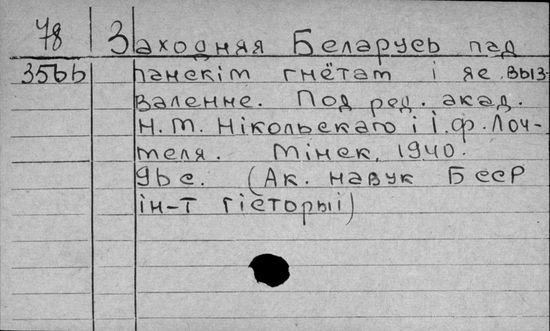 78 Заходняя Беларусь пад
35bb панскім гнётам і яе выз-
валенне. Под ред. акад.
Н.М. Нікольскаго і І.Ф. Лоч-
меля. Мінск, 1940.
96с. (Ак. навук БССР
ін-т гісторыі)